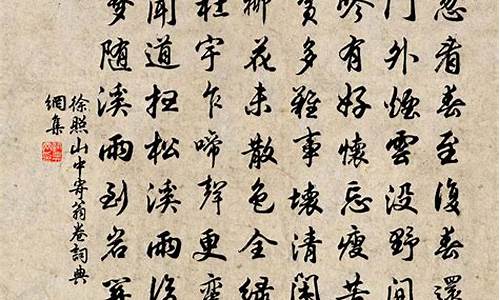 忍看春至復春還
門外煙雲没野間
吟有好懷忘瘦苦
貧多難事壞清閑
柳花未散色全緑
杜宇乍啼聲更蠻
聞道扫松溪雨後
夢随溪雨到岩關
徐照山中寄翁卷詞典
網集